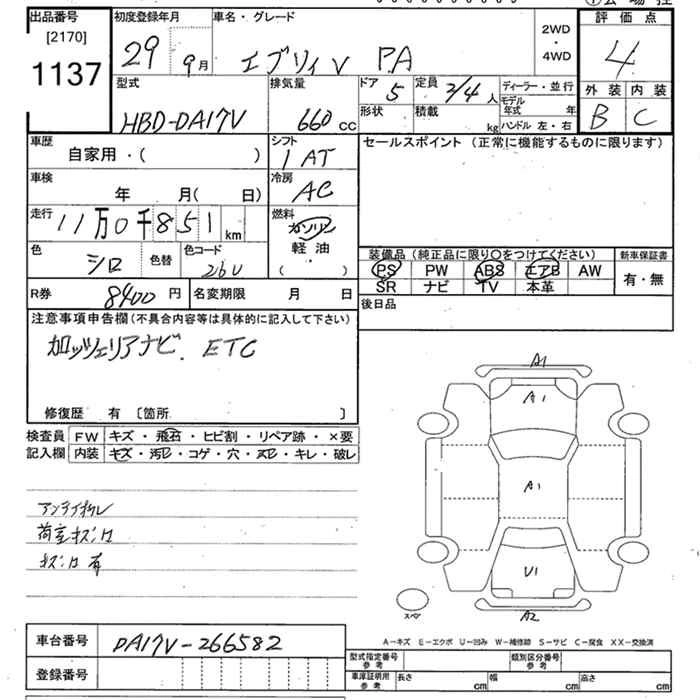 出品番号
[2170]
1137
初度登録年月
29 9月
車名・グレード
エブリィV PA
2WD
・
4WD
評価点
4
外装 内装
B C
型式
HBD-DA17V
排気量
660 cc
ドア 5
定員 2/4人
形状
積載 kg
ディーラー・並行
モデル年式 年
ハンドル 左・右
車歴
自家用・( )
シフト
1 AT
セールスポイント (正常に機能するものに限ります)
車検
年 月( 日)
冷房
AC
走行
11万0千851km
燃料
ガソリン
軽油
( ・ )
色
シロ
色替
色コード
26U
装備品 (純正品に限り○をつけてください)
PS PW ABS エアB AW
SR ナビ TV 本革
新車保証書
有・無
R券 8400円
名変期限 月 日
後日品
注意事項申告欄(不具合内容等は具体的に記入して下さい)
カロッツェリアナビ. ETC
修復歴 有 〔箇所 〕
検査員
記入欄
FW キズ・飛石・ヒビ割・リペア跡・×要
内装 キズ・汚レ・コゲ・穴・スレ・キレ・破レ
荷室キズ凹
キズ凹有
A1
A1
A1
U1
A2
スペア
A-キズ E-エクボ U-凹み W-補修跡 S-サビ C-腐食 XX-交換済
車台番号 DA17V-266582
登録番号
型式指定番号
参考
類別区分番号
参考
車庫証明用
参考
長さ cm
幅 cm
高さ cm